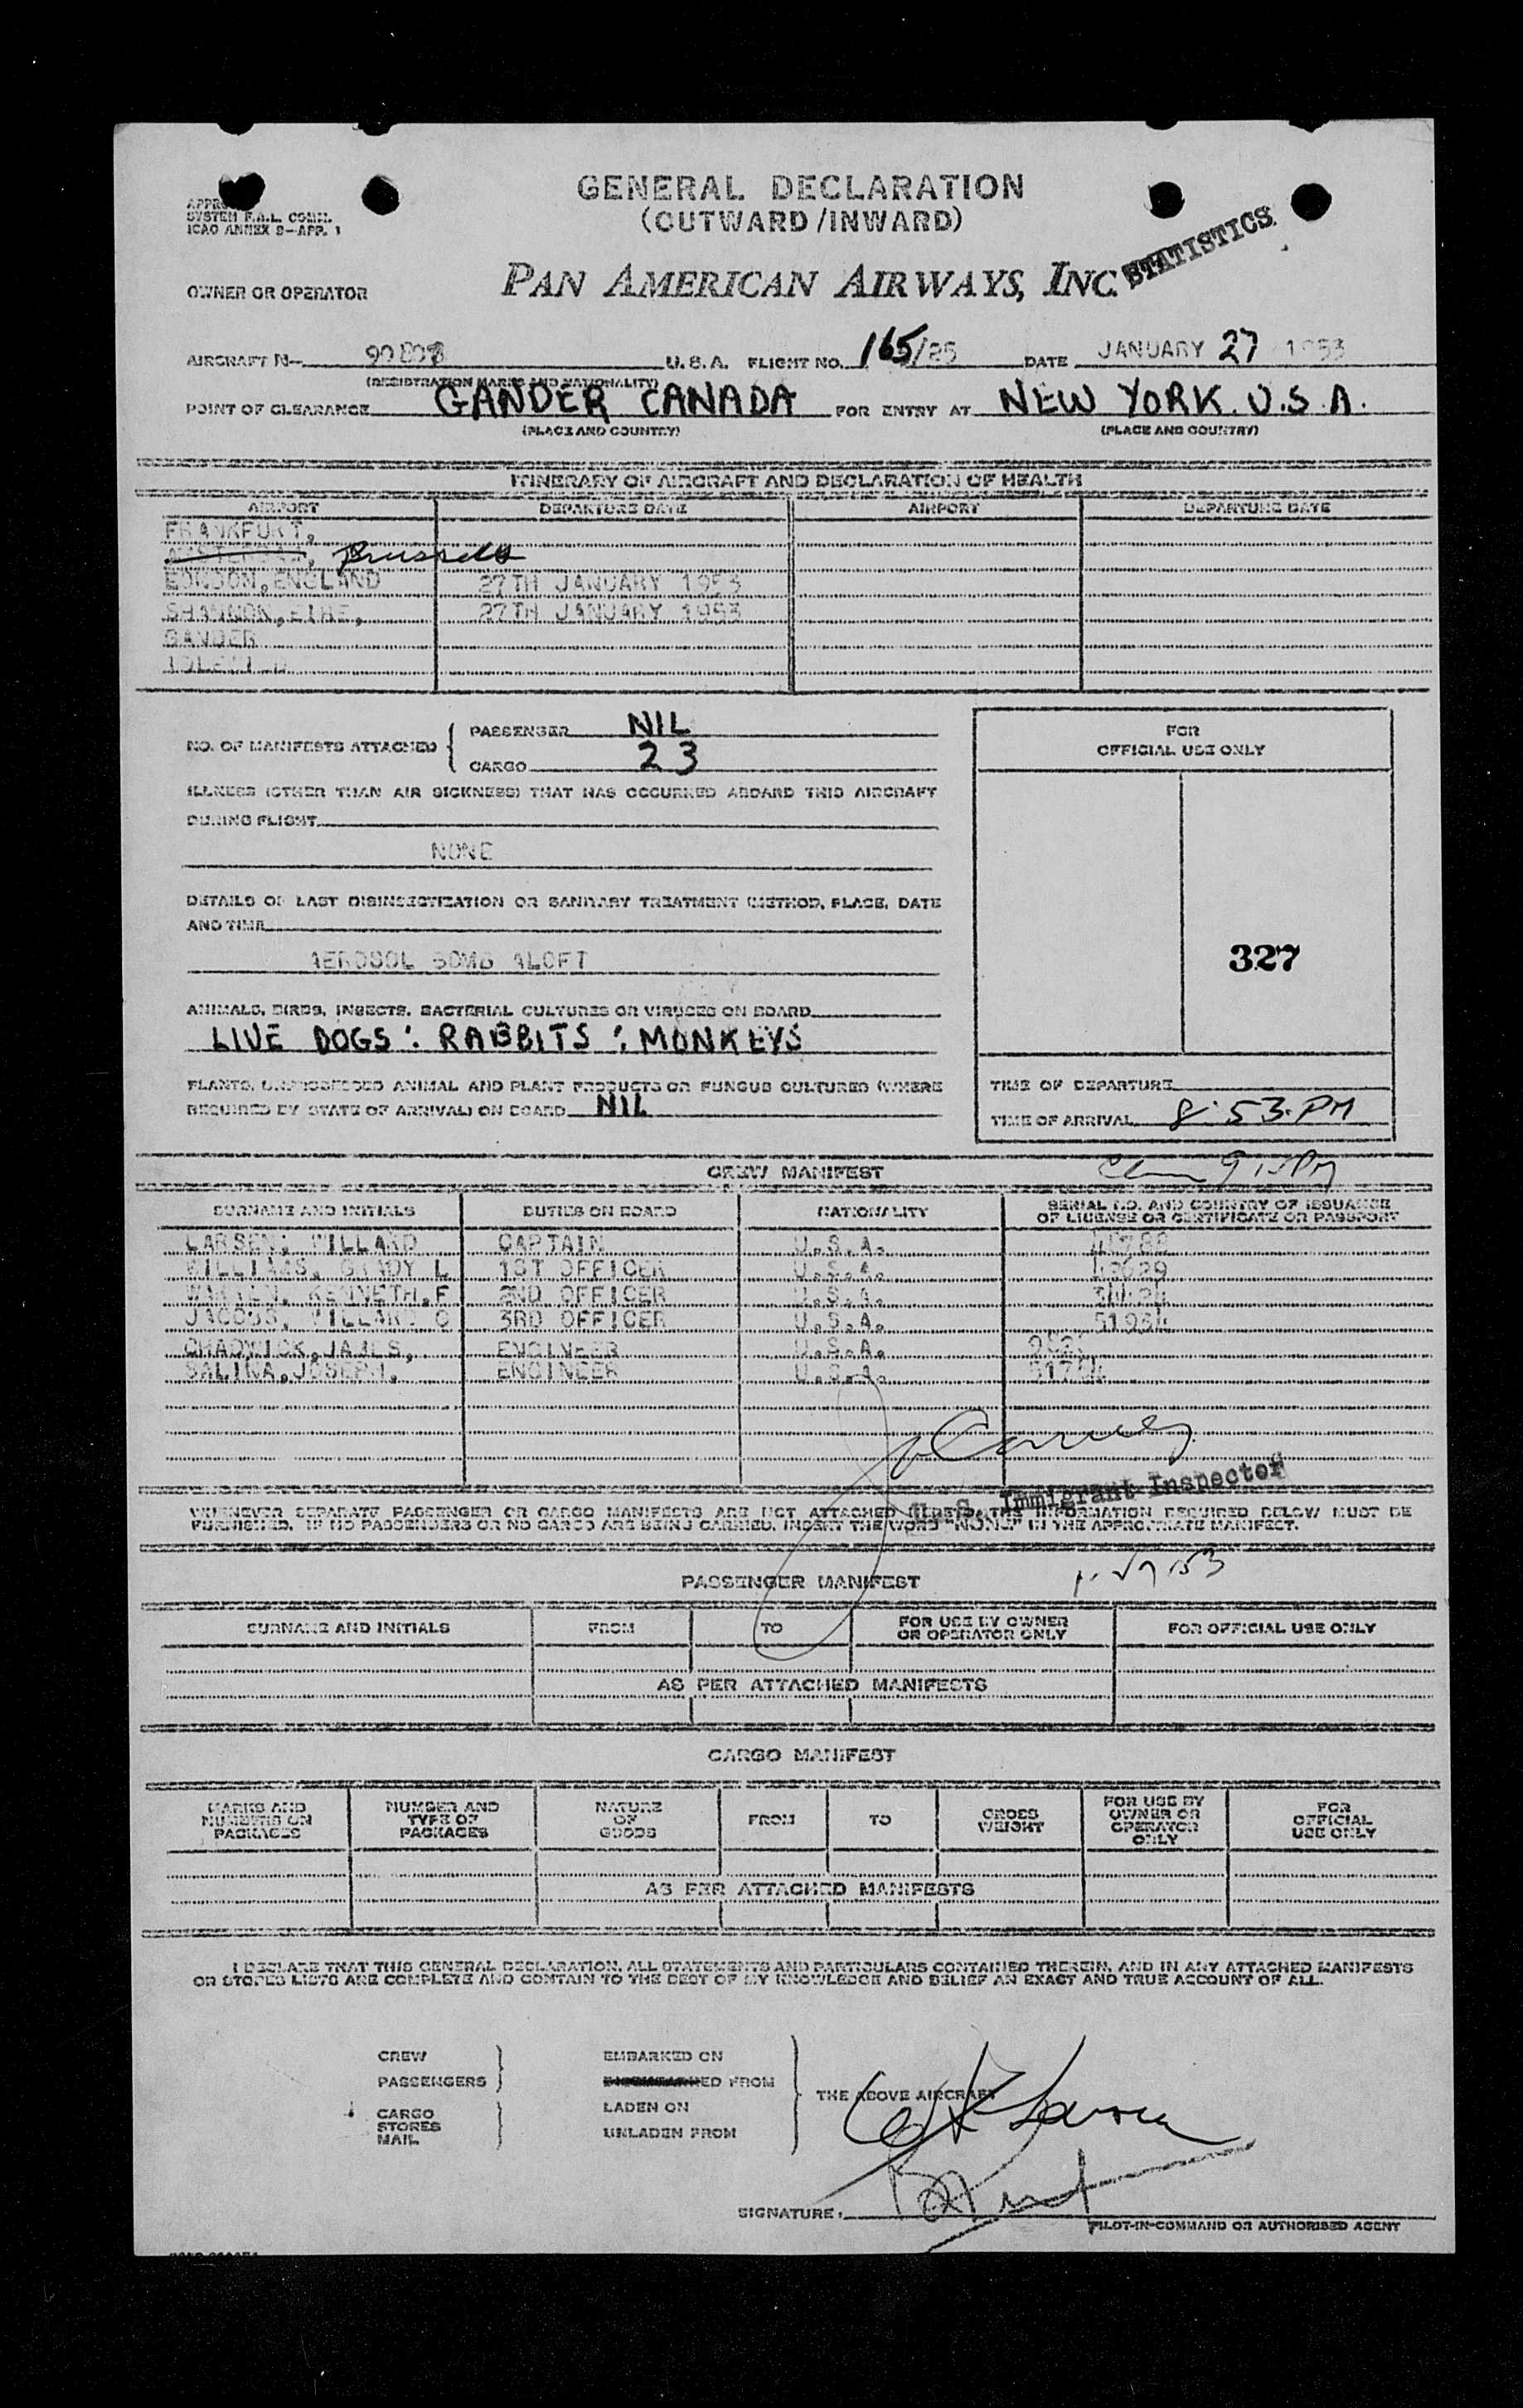 GENERAL DECLARATION
(OUTWARD/INWARD)
SYSTEM F.A.L. COMM.
ICAO ANNEX 9-APP. 1
STATISTICS
OWNER OR OPERATOR PAN AMERICAN AIRWAYS, INC.
AIRCRAFT N- U.S.A. FLIGHT NO. 165/25 DATE JANUARY 27 1953
(REGISTRATION MARKS AND NATIONALITY)
POINT OF CLEARANCE GANDER CANADA FOR ENTRY AT NEW YORK. U.S.A.
(PLACE AND COUNTRY) (PLACE AND COUNTRY)
ITINERARY OF AIRCRAFT AND DECLARATION OF HEALTH
AIRPORT DEPARTURE DATE AIRPORT DEPARTURE DATE
FRANKFURT,
AMSTERDAM, Brussels
LONDON, ENGLAND 27TH JANUARY 1953
SHANNON, EIRE, 27TH JANUARY 1953
GANDER
IDLEWILD
NO. OF MANIFESTS ATTACHED { PASSENGER NIL
CARGO 23
FOR
OFFICIAL USE ONLY
ILLNESS (OTHER THAN AIR SICKNESS) THAT HAS OCCURRED ABOARD THIS AIRCRAFT
DURING FLIGHT
NONE
DETAILS OF LAST DISINSECTIZATION OR SANITARY TREATMENT (METHOD, PLACE, DATE
AND TIME
AEROSOL BOMB ALOFT
327
ANIMALS, BIRDS, INSECTS, BACTERIAL CULTURES OR VIRUSES ON BOARD
LIVE DOGS : RABBITS : MONKEYS
PLANTS, UNPROCESSED ANIMAL AND PLANT PRODUCTS OR FUNGUS CULTURES (WHERE
REQUIRED BY STATE OF ARRIVAL) ON BOARD NIL
TIME OF DEPARTURE
TIME OF ARRIVAL 8:53 PM
CREW MANIFEST
SURNAME AND INITIALS DUTIES ON BOARD NATIONALITY SERIAL NO. AND COUNTRY OF ISSUANCE
OF LICENSE OR CERTIFICATE OR PASSPORT
LARSEN, WILLARD CAPTAIN U.S.A.
WILLIAMS, GRADY L 1ST OFFICER U.S.A.
WARREN, KENNETH, F 2ND OFFICER U.S.A.
JACOBS, WILLARD C 3RD OFFICER U.S.A.
CHADWICK, JAMES, ENGINEER U.S.A.
SALINA, JOSEPH, ENGINEER U.S.A.
U. S. Immigrant Inspector
WHENEVER SEPARATE PASSENGER OR CARGO MANIFESTS ARE NOT ATTACHED THE INFORMATION REQUIRED BELOW MUST BE
FURNISHED. IF NO PASSENGERS OR NO CARGO ARE BEING CARRIED, INSERT THE WORD "NONE" IN THE APPROPRIATE MANIFEST.
PASSENGER MANIFEST
SURNAME AND INITIALS FROM TO FOR USE BY OWNER
OR OPERATOR ONLY FOR OFFICIAL USE ONLY
AS PER ATTACHED MANIFESTS
CARGO MANIFEST
MARKS AND
NUMBERS ON
PACKAGES
NUMBER AND
TYPE OF
PACKAGES
NATURE
OF
GOODS
FROM
TO
GROSS
WEIGHT
FOR USE BY
OWNER OR
OPERATOR
ONLY
FOR
OFFICIAL
USE ONLY
AS PER ATTACHED MANIFESTS
I DECLARE THAT THIS GENERAL DECLARATION, ALL STATEMENTS AND PARTICULARS CONTAINED THEREIN, AND IN ANY ATTACHED MANIFESTS
OR STORES LISTS ARE COMPLETE AND CONTAIN TO THE BEST OF MY KNOWLEDGE AND BELIEF AN EXACT AND TRUE ACCOUNT OF ALL.
CREW
PASSENGERS
CARGO
STORES
MAIL
EMBARKED ON
FROM
LADEN ON
UNLADEN FROM
THE ABOVE AIRCRAFT
SIGNATURE:
PILOT-IN-COMMAND OR AUTHORISED AGENT